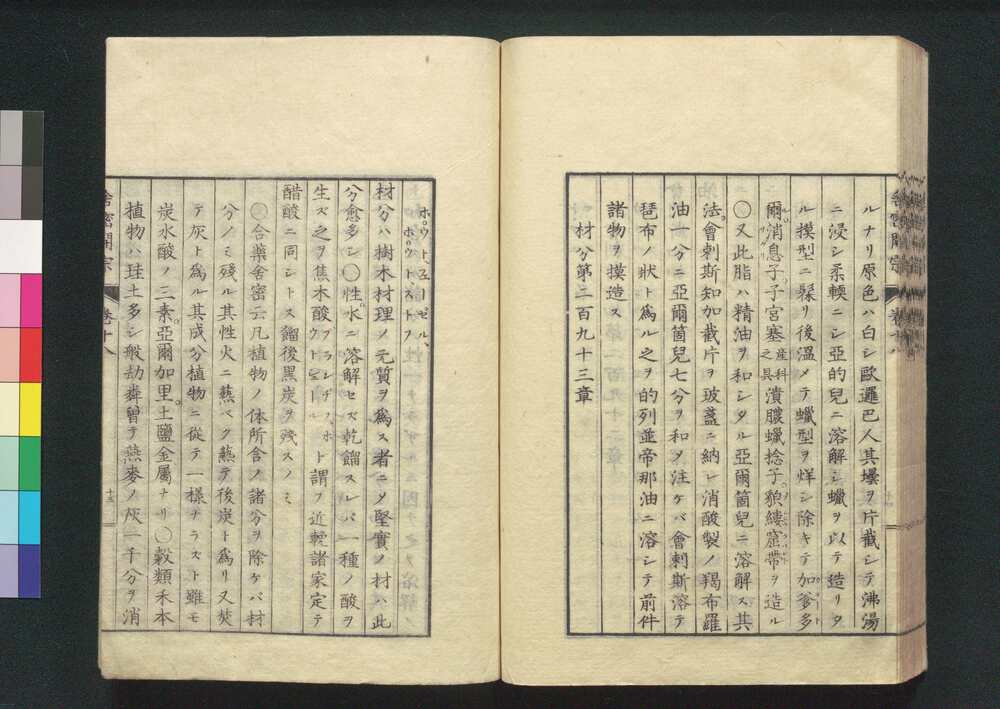 ルナリ原色ハ白シ歐邏巴人其壜ヲ片截シテ沸湯
ニ浸シ柔輭ニシ亞的兒ニ溶解シ蠟ヲ以テ造リタ
ル摸型ニ髹リ後温メテ蠟型ヲ烊シ除キテ加爹多
爾消息子子宮塞産科之具潰膿蠟捻子貌縷窟帶ヲ造ル
〇又此脂ハ精油ヲ和シタル亞爾箇兒ニ溶解ス其
法會剌斯知加截片ヲ玻盞ニ納レ消酸製ノ羯布羅
油一分ニ亞爾箇兒七分ヲ和ヲ注ケバ會剌斯溶テ
琶布ノ狀ト爲ル之ヲ的列並帝那油ニ溶シテ前件
諸物ヲ摸造ス
材分第二百九十三章
ホウトユーゼル、
ホウトストフ
材分ハ樹木材理ノ元質ヲ爲ス者ニタ堅實ノ材ハ此
分愈多シ〇性水ニ溶解セズ乾餾スレバ一種ノ酸ヲ
生ズ之ヲ焦木酸ブランデス、ホウトシュールト謂フ近輓諸家定テ
醋酸ニ同シトス餾後黑炭ヲ殘スノミ
〇合藥舍密云凡植物ノ体所含ノ諸分ヲ除ケバ材
分ノミ殘ル其性火ニ爇ベク爇テ後炭ト爲リ又焚
テ灰ト爲ル其成分植物ニ從テ一樣ナラズト雖モ
炭水酸ノ三素亞爾加里土鹽金屬ナリ〇穀類禾本
植物ハ珪土多シ般劫粦曾テ燕麥ノ灰一千分ヲ消
舍密開宗
卷十八
十三